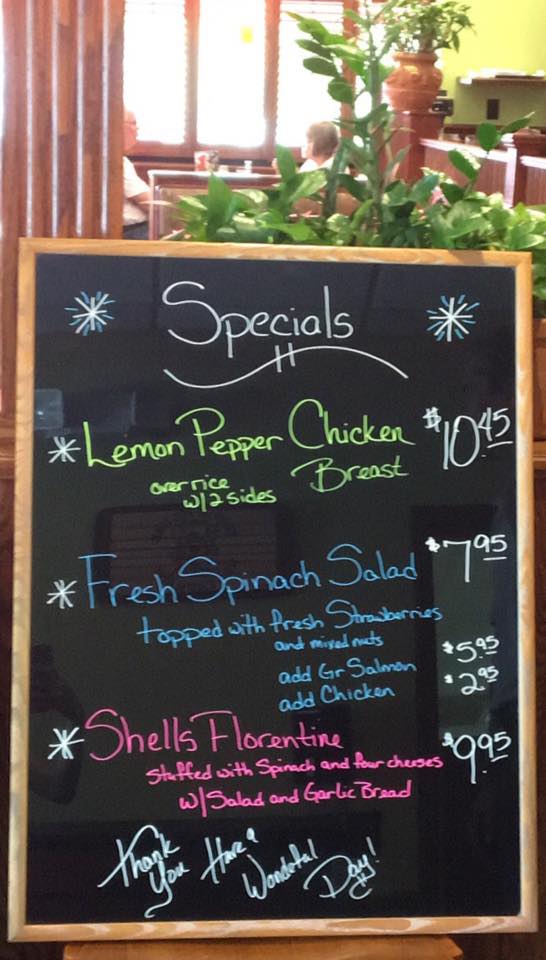 Specials
* Lemon Pepper Chicken $10.45
over rice Breast
w/2 sides
* Fresh Spinach Salad $7.95
topped with fresh Strawberries
and mixed nuts
add Gr Salmon $5.95
add Chicken $2.95
* Shells Florentine $9.95
stuffed with Spinach and four cheeses
w/Salad and Garlic Bread
Thank You Have a Wonderful Day!